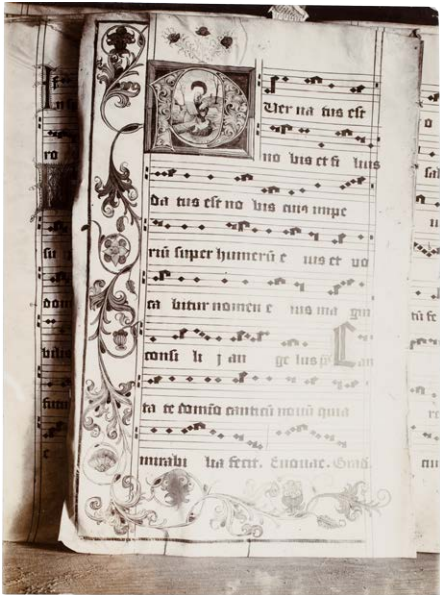 Uer na tus est
no bis et fi lius
da tus est no bis cuiꝰ impe
riū super humerū e ius et vo
ca bitur nomen e ius ma gni
consi li j an ge lus p̄s Can
ta te domīo canticū nouū quia
mirabi lia fecit. Euouae.